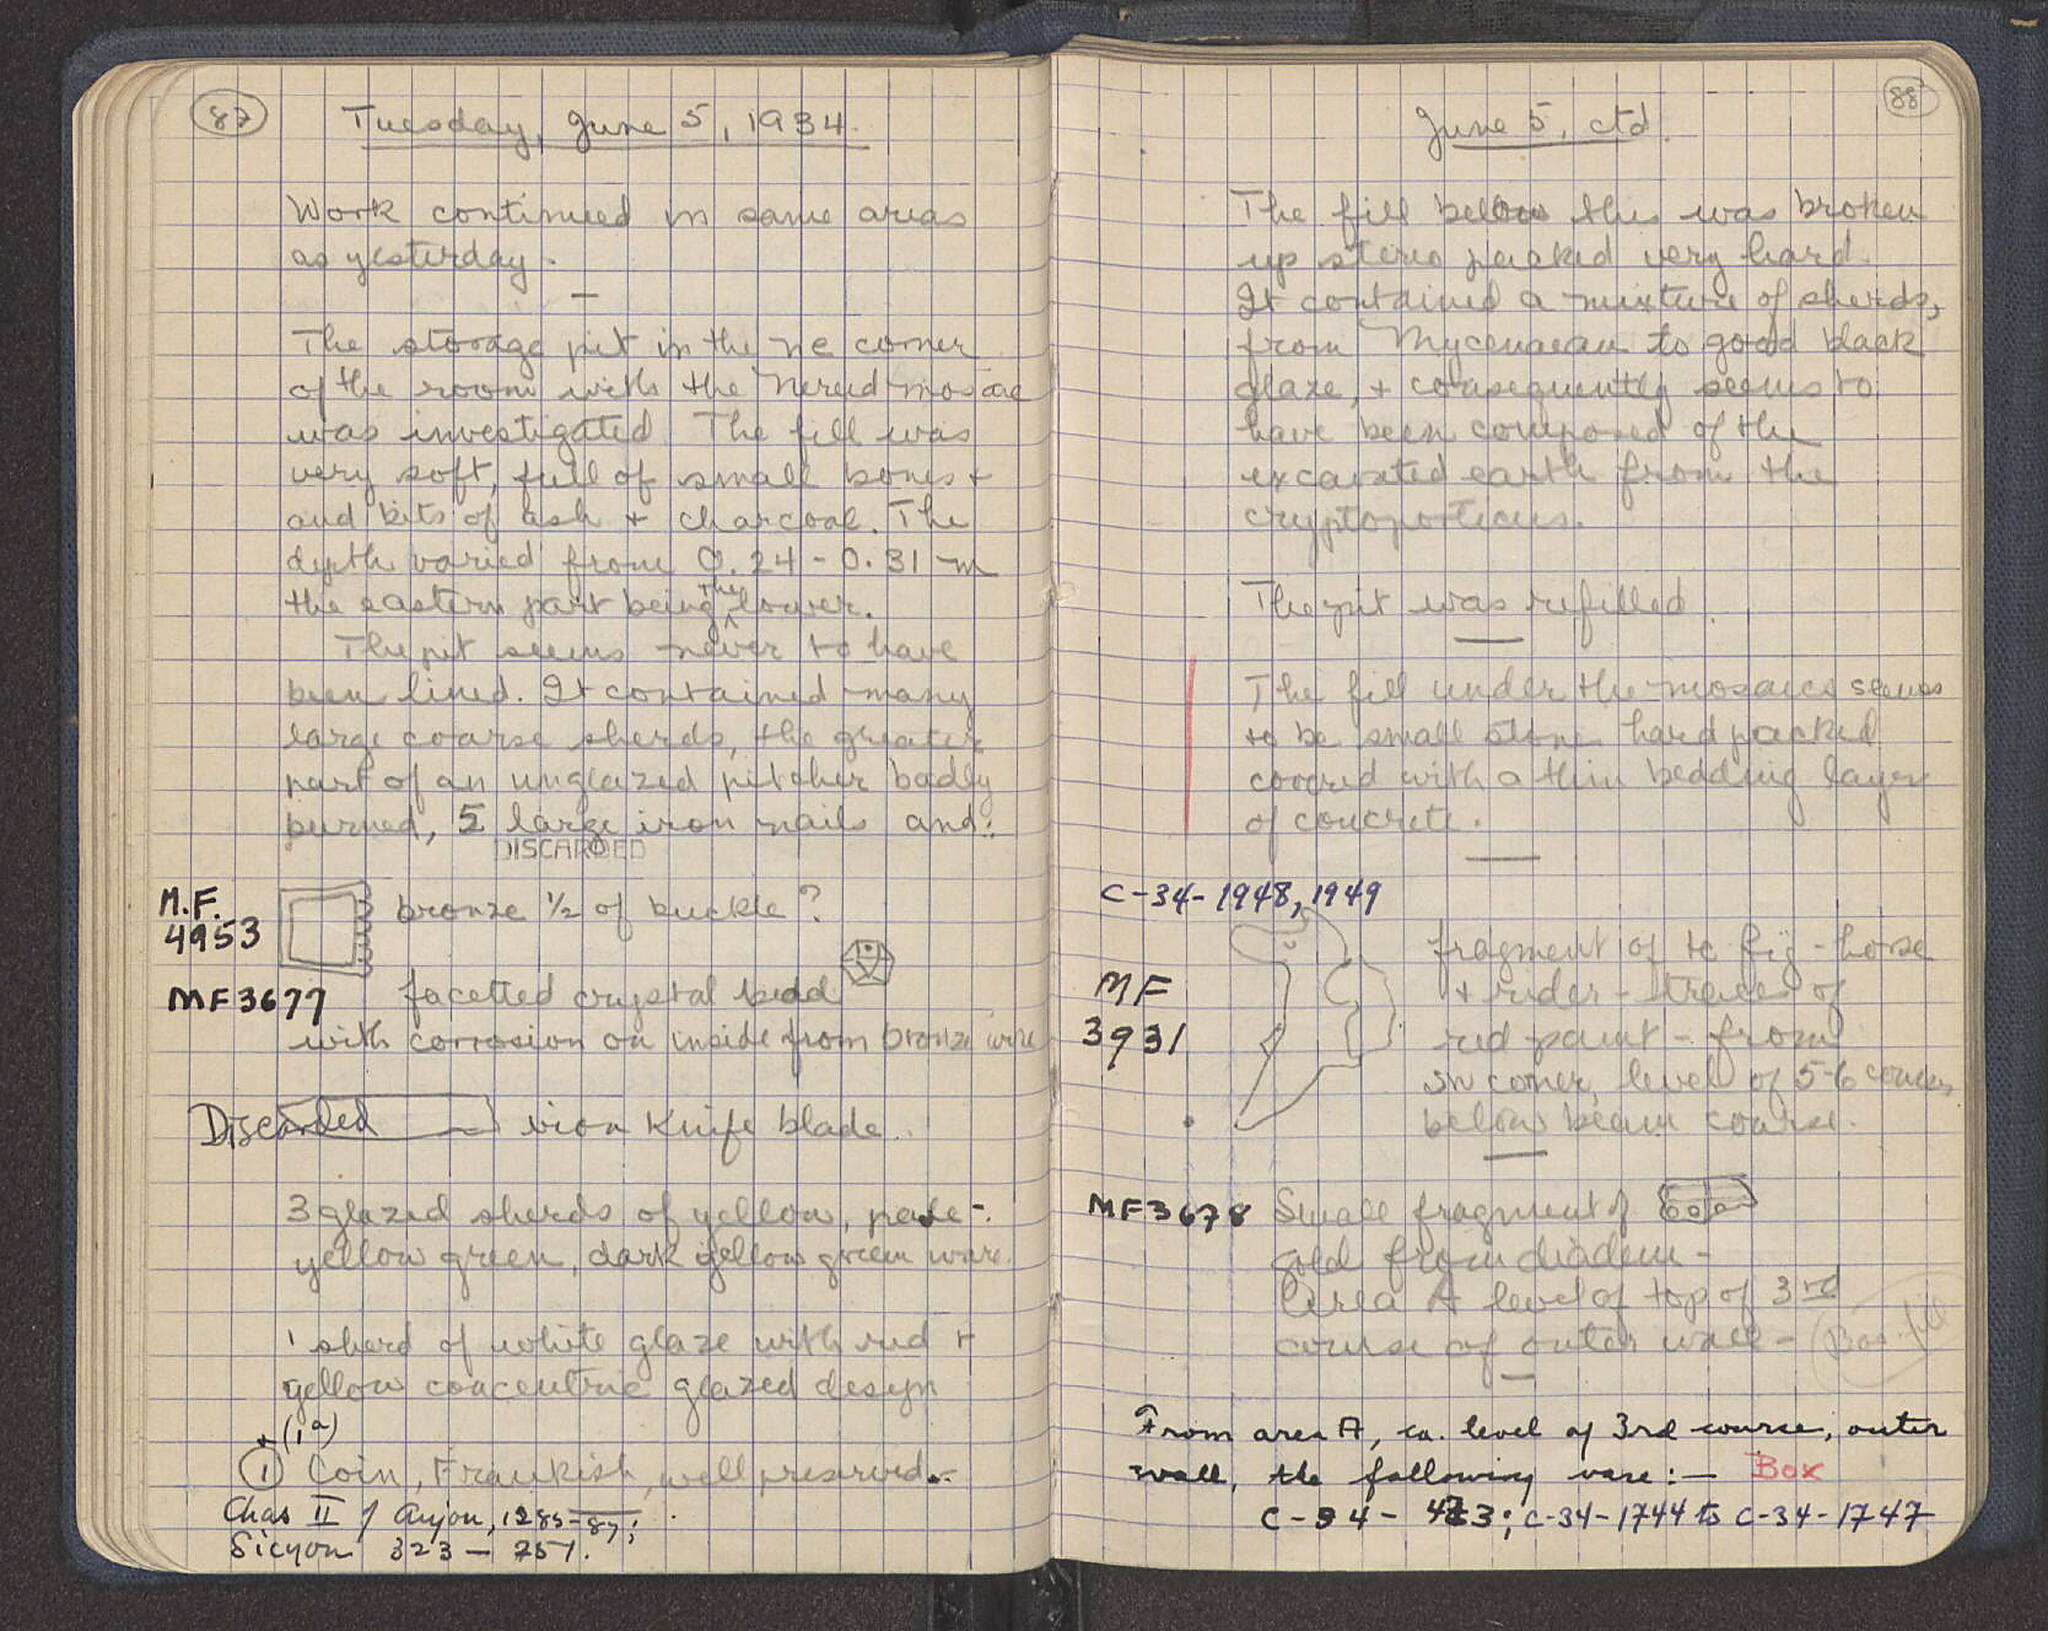 87
Tuesday, June 5, 1934.
Work continued in same areas
as yesterday.
The storage pit in the ne corner
of the room with the Nereid mosaic
was investigated. The fill was
very soft, full of small bones +
and bits of ash + charcoal. The
depth varied from 0.24 - 0.31 m
the eastern part being the lower.
The pit seems never to have
been lined. It contained many
large coarse sherds, the greater
part of an unglazed pitcher badly
burned, 5 large iron nails and:
DISCARDED
M.F. 4953
bronze 1/2 of buckle?
MF 3677 facetted crystal bead
with corrosion on inside from bronze wire
Discarded iron knife blade.
3 glazed sherds of yellow, pale-
yellow green, dark yellow green ware.
1 sherd of white glaze with red +
yellow concentric glazed design
+ (1a)
1 Coin, Frankish, well preserved.
Chas II of Anjou, 1285-87;
Sicyon 323 - 251.
88
June 5, ctd.
The fill below this was broken
up stereo packed very hard.
It contained a mixture of sherds,
from Mycenaean to good black
glaze, + consequently seems to
have been composed of the
excavated earth from the
cryptoporticus.
The pit was refilled.
The fill under the mosaics seems
to be small stones hard packed
covered with a thin bedding layer
of concrete.
C-34-1948, 1949
MF 3931
fragment of tc fig - horse
+ rider - traces of
red paint - from
SW corner, level of 5-6 courses
below beam course.
MF 3678 Small fragment of
gold from diadem -
Area A level of top of 3rd
course of outer wall -
From area A, ca. level of 3rd course, outer
wall, the following vase: - Box
C-34- ; C-34-1744 to C-34-1747